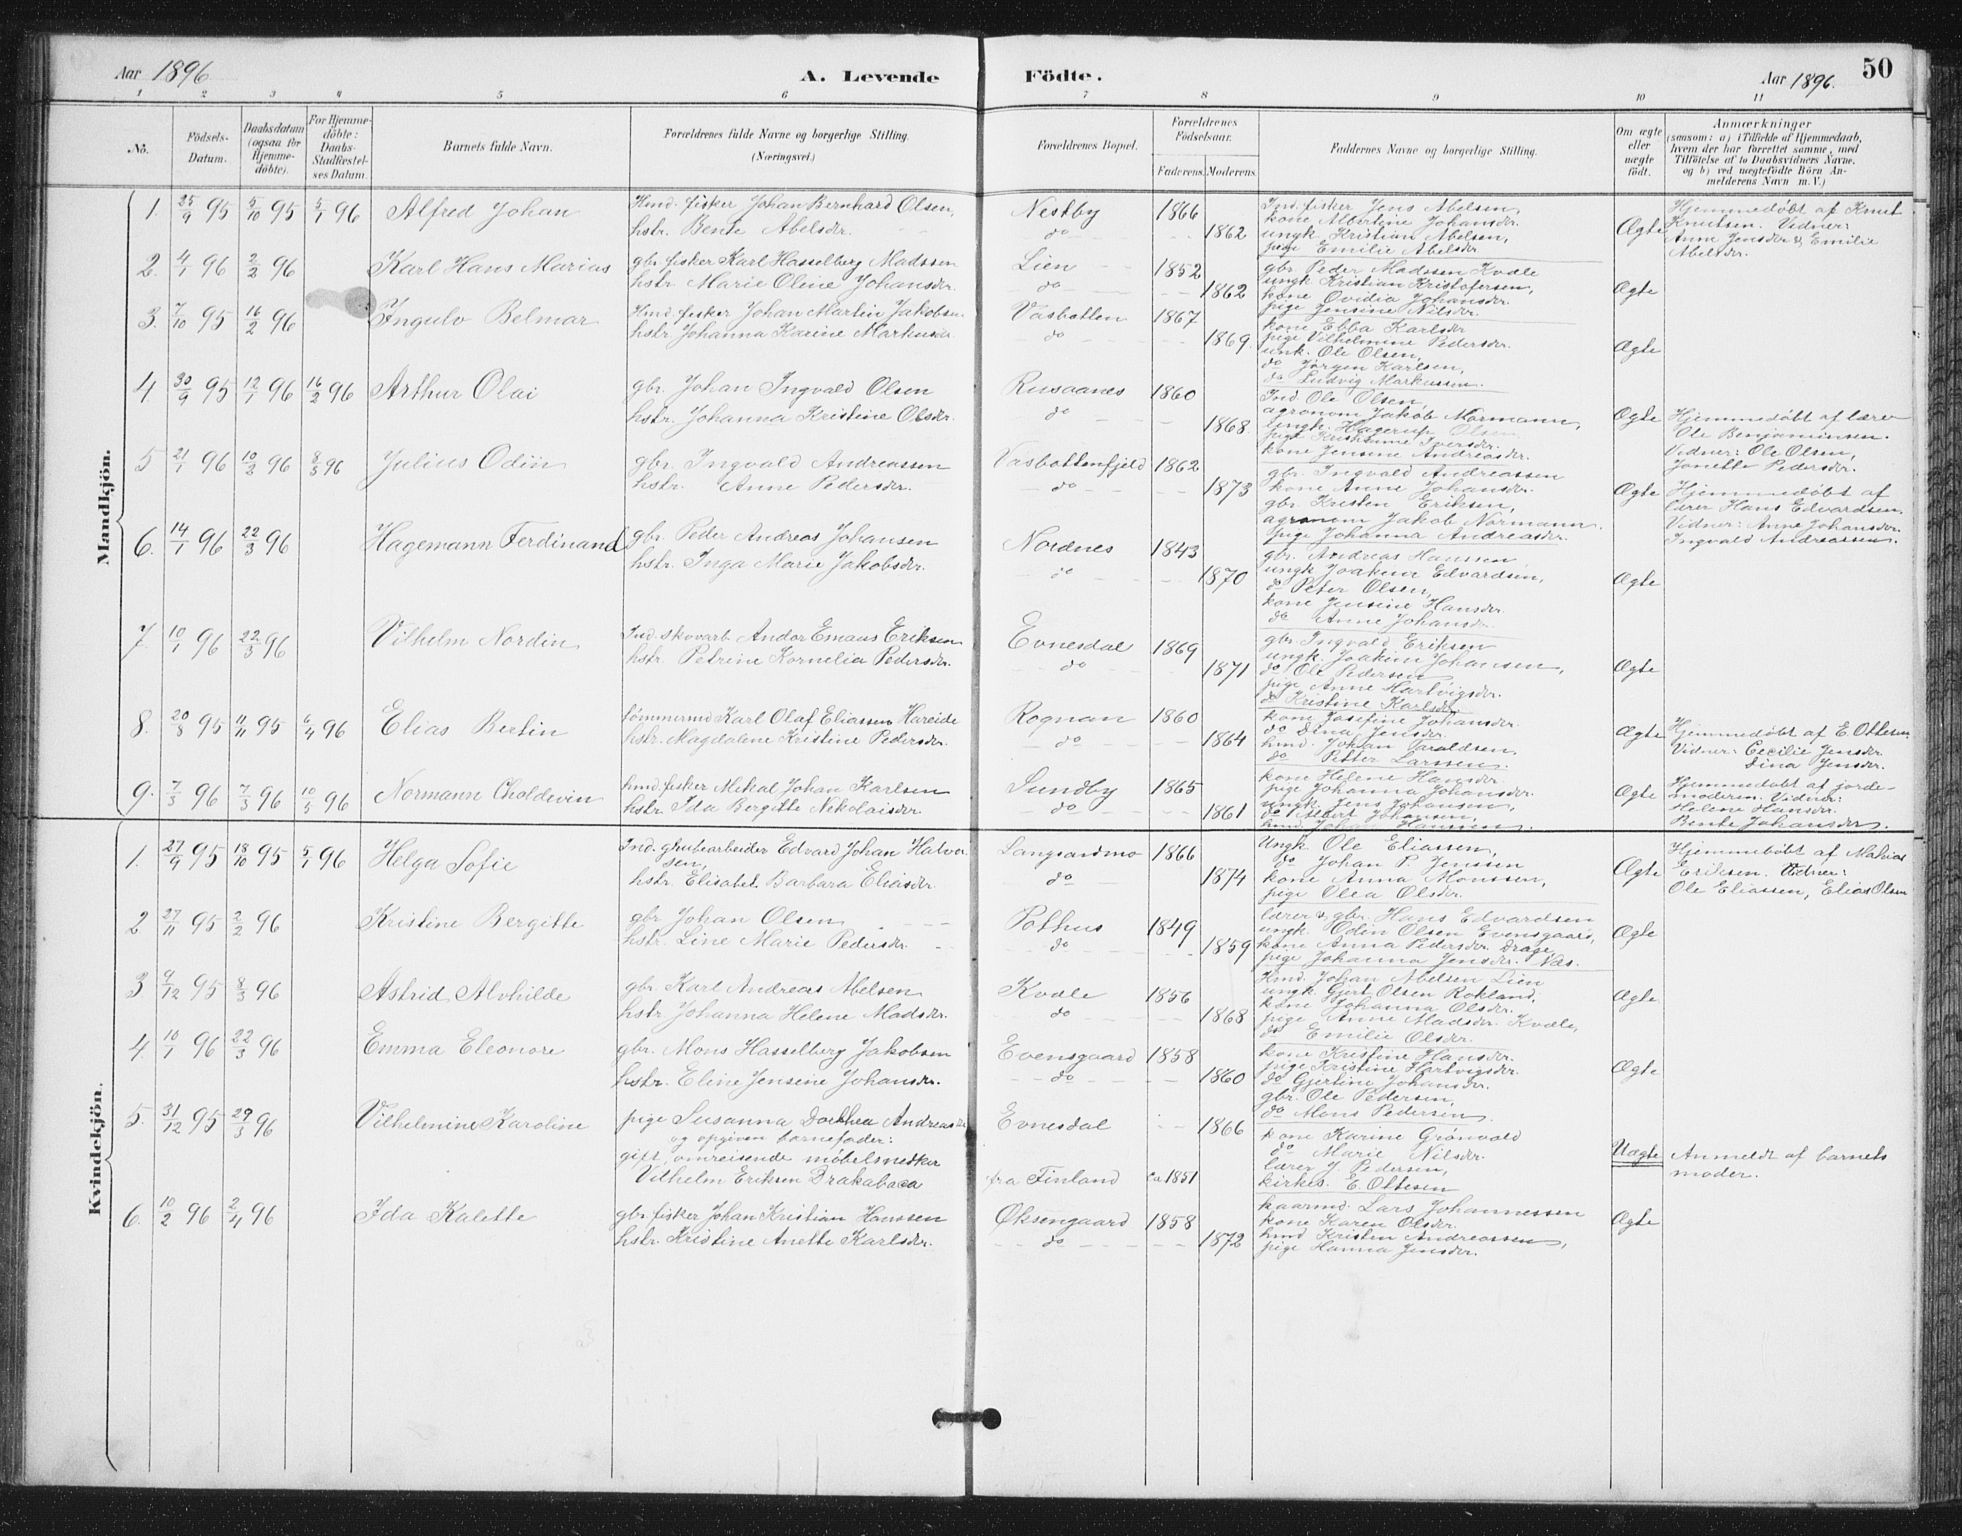 Aar 1896
A. Levende Födte.
Aar 1896.
50
1 2 3 4 5 6 7 8 9 10 11
No.
Födsels-Datum.
Daabsdatum (ogsaa for Hjemmedöbte).
For Hjemmedöbte: Daabs-Stadfæstelses Datum.
Barnets fulde Navn.
Forældrenes fulde Navne og borgerlige Stilling. (Næringsvei.)
Forældrenes Bopæl.
Forældrenes Födselsaar.
Faderens. Moderens.
Faddernes Navne og borgerlige Stilling.
Om ægte eller uægte födt.
Anmærkninger
(saasom: a) i Tilfælde af Hjemmedaab, hvem der har forrettet samme, med Tilföielse af to Daabsvidners Navne, og b) ved uægtefödte Börn Anmelderens Navn m. V.)
Mandkjön.
1. 25/9 95 5/10 95 5/1 96 Alfred Johan
Hmd. fisker Johan Bernhard Olsen,
hstr. Bente Abelsdr.
Nestby 1866
do 1862
Ind. fisker Jens Abelsen,
kone Albertine Johansdr.
ungk. Kristian Abelsen,
pige Emilie Abelsdr.
Ægte
Hjemmedøbt af Knut
Knutsen. Vidner:
Anne Jensdr & Emilie
Abelsdr.
2. 4/1 96 2/2 96 Karl Hans Marius
gbr. fisker Karl Hasselberg Madssen
hstr Marie Oline Johansdr.
Lien 1852
do 1862
gbr Peder Madssen Kvæle
ungk Kristian Kristofersen,
kone Ovidia Johansdr.
pige Jensine Nilsdr.
Ægte
3. 7/10 95 16/2 96 Ingulv Belmar
Hmd. fisker Johan Martin Jakobsen
hstr Johanna Karine Markusdr.
Vasbotten 1867
do 1869.
kone Ebba Karlsdr
pige Vilhelmine Pedersdr.
unk. Ole Olsen,
do Jørgen Karlsen,
do Ludvig Markussen.
Ægte
4 30/9 95 12/1 96 16/2 96 Arthur Olai
gbr. Johan Ingvald Olsen
hstr. Johanna Kristine Olsdr.
Rusaanes 1860
do 1868
Ind Ole Olsen,
agronom Jakob Normann,
Ungk. Hagerup Olsen
pige Kristianne Iversdr.
kone Jensine Andreasdr.
Ægte
Hjemmedøbt af lærer
Ole Benjaminsen.
Vidner: Ole Olsen,
Janette Pedersdr.
5 21/1 96 10/2 96 8/3 96 Julius Odin
gbr. Ingvald Andreassen
hstr. Anne Pedersdr.
Vasbottenfjeld 1862
do 1873
gbr. Ingvald Andreassen
kone Anne Johansdr.
gbr. Kristen Eriksen,
agronom Jakob Normann.
pige Johanna Andreasdr.
Ægte
Hjemmedøbt af
lærer Hans Edvardsen.
Vidner: Anne Johansdr.
Ingvald Andreassen.
6. 14/1 96 22/3 96 Hagemann Ferdinand
gbr. Peder Andreas Johansen
hstr. Inga Marie Jakobsdr.
Nordnes 1843
do 1870
gbr. Andreas Hanssen
ungk Joakim Edvardsen,
do Peter Olsen,
kone Jensine Hansdr.
do Anne Johansdr.
Ægte
7. 10/1 96 22/3 96 Vilhelm Nordin
Ind. skovarb Andor Emaus Eriksen
hstr. Petrine Kornelia Pedersdr.
Evnesdal 1869
do 1871
gbr. Ingvald Eriksen
ungk. Joakim Johansen,
do Ole Pedersen
pige Anne Hartvigsdr.
do Kristine Karlsdr.
Ægte
8. 20/8 95 11/11 95 6/4 96 Elias Bertin
tømmermd Karl Olaf Eliassen Hareide
hstr. Magdalene Kristine Pedersdr.
Rognan 1860
do 1864
kone Josefine Johansdr.
do Dina Jensdr.
hmd. Johan Paraldsen,
do Petter Larssen.
Ægte
Hjemmedøbt af E. Ottesen.
Vidner: Cecilie Jensdr.
Dina Jensdr.
9. 7/3 96 7/3 96 10/5 96 Normann Choldevin
hmd. fisker Mekal Johan Karlsen
hstr Ida Bergitte Nikolaisdr.
Sundby 1865
do 1861
kone Helene Hansdr.
pige Johanna Johansdr.
ungk. Jens Johansen,
do Albert Johansen,
hmd. Johan Hanssen.
Ægte
Hjemmedøbt af jordemoderen. Vidner:
Helene Hansdr.
Bente Johansdr.
Kvindekjön.
1. 27/9 95 18/10 95 5/1 96 Helga Sofie
Ind. grubearbeider Edvard Johan Halvorsen,
hstr. Elisabet Barbara Eliasdr.
Langsandmo 1866
do 1874
Ungk Ole Eliassen,
do Johan P. Jenssen
kone Anna Monssen,
pige Olea Olsdr.
Ægte
Hjemmedøbt af Mathias
Eriksen. Vidner:
Ole Eliassen, Elias Olsen
2 27/11 95 2/2 96 Kristine Bergitte
gbr Johan Olsen
hstr. Line Marie Pedersdr.
Pothus 1849
do 1859
lærer & gbr. Hans Edvardsen
ungk Odin Olsen Evensgaard,
kone Anna Pedersdr. Drage
pige Johanna Jensdr. Næs.
Ægte
3 9/12 95 8/3 96 Astrid Alvhilde
gbr. Karl Andreas Abelsen
hstr Johanna Helene Madsdr.
Kvæle 1856
do 1868
Hmd. Johan Abelsen Lien
ungk. Gjert Olsen Rokland,
kone Johanna Olsdr.
pige Anne Madsdr. Kvæle,
do Emilie Olsdr.
Ægte
4. 10/1 96 22/3 96 Emma Eleonore
gbr. Mons Hasselberg Jakobsen
hstr. Eline Jensine Johansdr.
Evensgaard 1858
do 1860
kone Kristine Hansdr.
pige Kristine Hartvigsdr.
do Gjertine Johansdr.
gbr. Ole Pedersen,
do Mons Pedersen.
Ægte
5. 31/12 95 29/3 96 Vilhelmine Karoline
pige Susanna Dorthea Andreasdr
og opgiven barnefader:
gift, omreisende møbelsnedker
Vilhelm Eriksen Drakabacca
Evnesdal 1866
fra Finland ca 1851
kone Karine Grönvold
do Marie Nilsdr.
lærer J. Pedersen,
kirkes. E. Ottesen
Uægte
Anmeldt af barnets
moder.
6. 10/2 96 2/4 96 Ida Kalette
gbr. fisker Johan Kristian Hanssen
hstr. Kristine Anette Karlsdr.
Øksengaard 1858
do 1872
kaarmd. Lars Johannessen
kone Karen Olsdr.
hmd Kristen Andreassen,
pige Hanna Jensdr.
Ægte